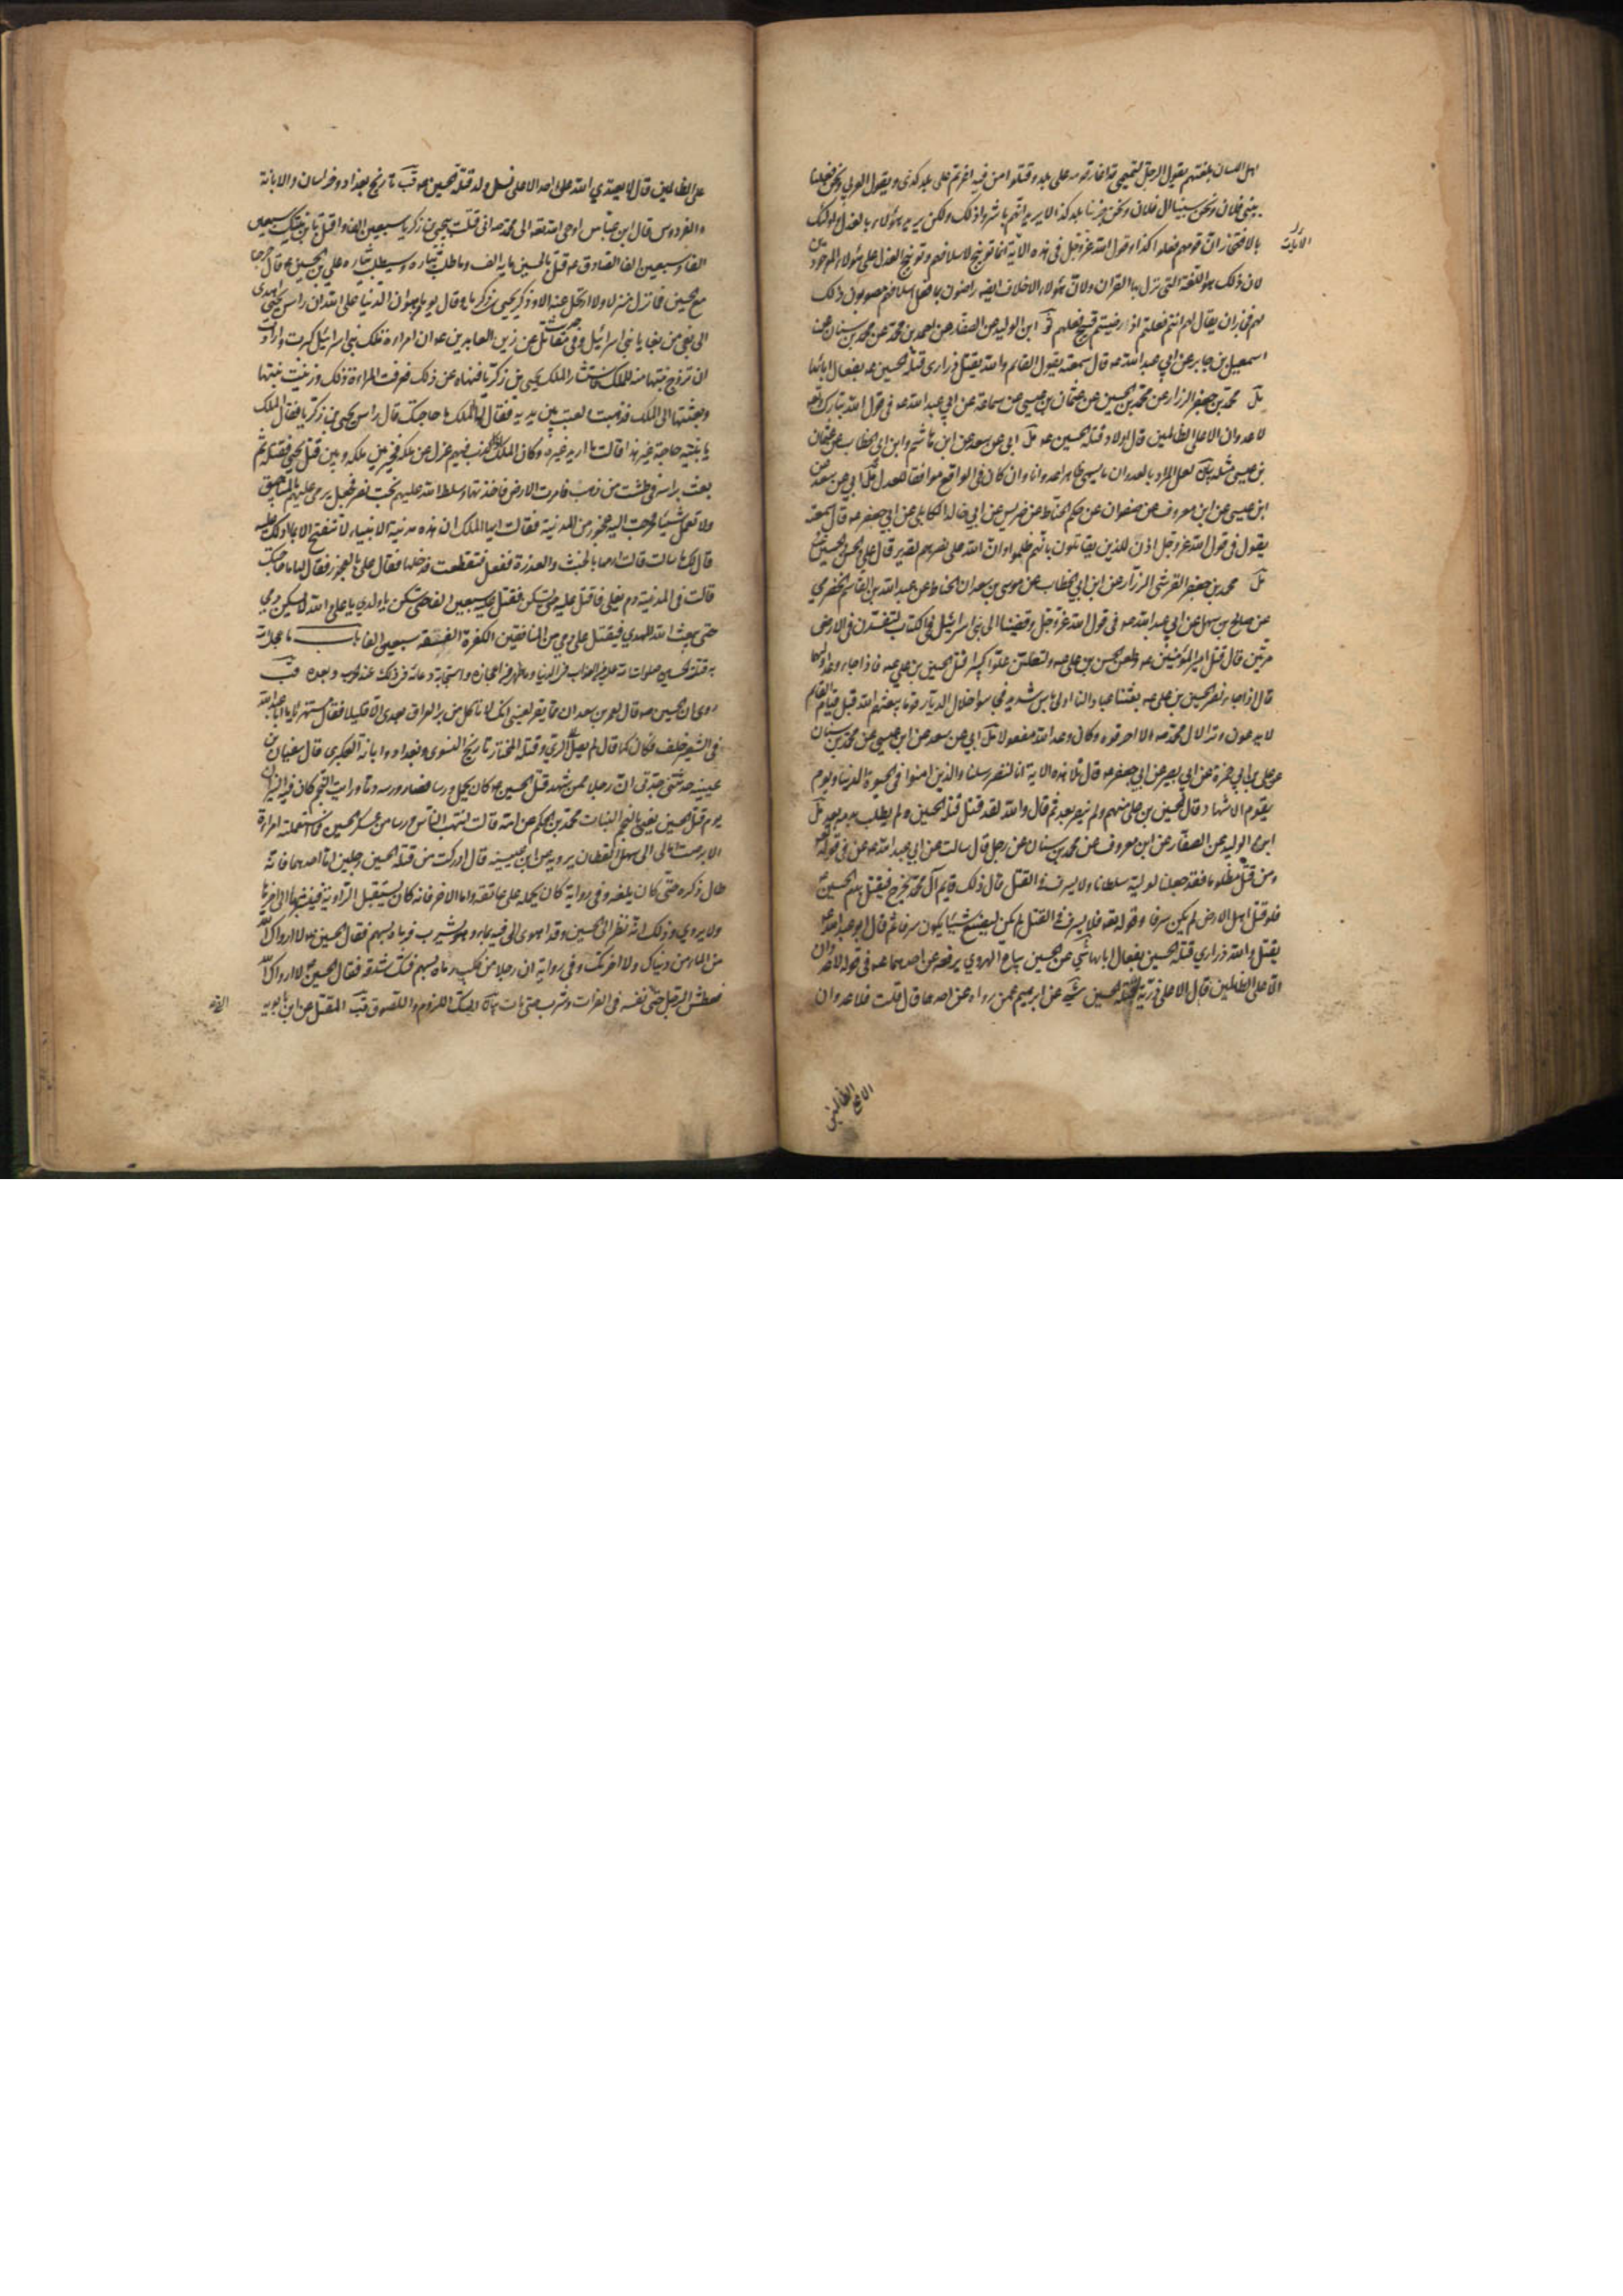 اهل اللسان بلغتهم يقول الرجل التميمي قد اغار قومه على بلد وقتلوا من فيه اغرتم على بلد كذى ويقول العربي ونحن فعلنا
ببني فلان ونحن سبينا آل فلان ونحن خربنا بلد كذا لا يريد انهم باشروا ذلك ولكن يريد هؤلاء بالعذل واولئك
بالافتخار ان قومهم فعلوا كذا وقول الله عز وجل في هذه الآية انما توبيخ لاسلافهم وتوبيخ العذل على هؤلاء الموجودين
لان ذلك هو اللغة التي نزل بها القران ولان هؤلاء الاخلاف ايضا راضون بما فعل اسلافهم مصوبون ذلك
لهم فجاز ان يقال لهم انتم فعلتم اذ رضيتم قبيح فعلهم ابن الوليد عن الصفار عن احمد بن محمد عن محمد بن سنان عن
اسمعيل بن جابر عن ابي عبد الله عه قال سمعته يقول القائم والله يقتل ذراري قتلة الحسين عه بفعال ابائها
مل محمد بن جعفر الرزاز عن محمد بن الحسين عن عثمان بن عيسى عن سماعة عن ابي عبد الله عه في قول الله تبارك وتعه
لا عدوان الا على الظالمين قال اولاد قتلة الحسين عه مل ابي عن سعد عن ابن هاشم وابن ابي الخطاب عن عثمان
بن عيسى مثله بيان لعل المراد بالعدوان ما يسمى ظاهرا عدوانا وان كان في الواقع موافقا للعدل مل ابي عن سعد عن
ابن عيسى عن ابن معروف عن صفوان عن حكم الحناط عن ضريس عن ابي خالد الكابلي عن ابي جعفر عه قال سمعته
يقول في قول الله عز وجل اذن للذين يقاتلون بانهم ظلموا وان الله على نصرهم لقدير قال علي والحسن والحسين
مل محمد بن جعفر القرشي الرزاز عن ابن ابي الخطاب عن موسى بن سعدان الحناط عن عبد الله بن القاسم الحضرمي
عن صالح بن سهل عن ابي عبد الله عه في قول الله عز وجل وقضينا الى بني اسرائيل في الكتاب لتفسدن في الارض
مرتين قال قتل امير المؤمنين عه وطعن الحسن بن علي عه ولتعلن علوا كبيرا قتل الحسين بن علي عه فاذا جاء وعد اوليهما
قال اذا جاء نصر الحسين بن علي عه بعثنا عليكم عبادا لنا اولي باس شديد فجاسوا خلال الديار قوما يبعثهم الله قبل قيام القائم
لا يدعون وترا لال محمد عه الا احرقوه وكان وعد الله مفعولا مل ابي عن سعد عن ابن عيسى عن محمد بن سنان
عن علي بن ابي حمزة عن ابي بصير عن ابي جعفر عه قال تلا هذه الاية انا لننصر رسلنا والذين امنوا في الحيوة الدنيا ويوم
يقوم الاشهاد قال الحسين بن علي منهم ولم ينصر بعد ثم قال والله لقد قتل قتلة الحسين ولم يطلب بدمه بعد مل
ابن الوليد عن الصفار عن ابن معروف عن محمد بن سنان عن رجل قال سالت عن ابي عبد الله عه عن في قوله تعه
ومن قتل مظلوما فقد جعلنا لوليه سلطانا ولا يسرف في القتل قال ذلك قايم آل محمد يخرج فيقتل بدم الحسين عه
فلو قتل اهل الارض لم يكن سرفا وقوله تعه فلا يسرف في القتل لم يكن ليصنع شيئا يكون سرفا ثم قال ابو عبد الله عه
يقتل والله ذراري قتلة الحسين بفعال ابائها شي عن الحسين بياع الهروي يرفعه عن احدهما عه في قوله لا عدوان
الا على الظالمين قال الا على ذرية قتلة الحسين شي عن ابرهيم عمن رواه عن احدهما قال قلت فلا عدوان
الا على الظالمين
على الظالمين قال لا يعتدي الله على احد الا على نسل ولد قتلة الحسين عه قب تاريخ بغداد وخراسان والابانة
والفردوس قال ابن عباس اوحى الله تعه الى محمد صه اني قتلت بيحيى بن زكريا سبعين الفا واقتل بابن بنتك سبعين
الفا وسبعين الفا الصادق عه قتل بالحسين مايه الف وما طلب بثاره وسيطلب بثاره علي بن الحسين عه قال خرجنا
مع الحسين فما نزل منزلا ولا ارتحل عنه الا وذكر يحيى بن زكريا عه وقال يوما من هوان الدنيا على الله ان راس يحيى اهدي
الى بغي من بغايا بني اسرائيل وفي حديث مقاتل عن زين العابدين عه ان امراءة ملك بني اسرائيل كبرت وارادت
ان تزوج بنتها منه للملك فاستشار الملك يحيى بن زكريا فنهاه عن ذلك فعرفت المراءة ذلك وزينت بنتها
وبعثتها الى الملك فذهبت ولعبت بين يديه فقال لها الملك ما حاجتك قال راس يحيى بن زكريا فقال الملك
يا بنية حاجة غير هذا قالت ما اريد غيره وكان الملك اذا كذب فيهم عزل عن ملكه فخير بين ملكه وبين قتل يحيى فقتله ثم
بعث براسه في طشت من ذهب فامرت الارض فاخذتها وسلط الله عليهم بخت نصر فجعل يرمي عليهم بالمناجيق
ولا تعمل شيئا فخرجت اليه عجوز من المدينة فقالت ايها الملك ان هذه مدينة الانبياء لا تنفتح الا بما ادلك عليه
قال لك ما سالت قالت ارمها بالخبث والعذرة ففعل فتقطعت فدخلها فقال علي بالعجوز فقال لها ما حاجتك
قالت في المدينة دم يغلي فاقتل عليه حتى يسكن فقتل عليه سبعين الفا حتى سكن يا ولدي يا علي والله لا يسكن دمي
حتى يبعث الله المهدي فيقتل على دمي من المنافقين الكفرة الفسقة سبعين الفا باب ما عجل الله
به قتلة الحسين صلوات الله عليه من العذاب في الدنيا وما ظهر من اعجازه واستجابة دعائه في ذلك عند الحرب وبعده قب
روى ان الحسين عه قال لعمر بن سعد ان مما يقر لعيني انك لا تاكل من بر العراق بعدي الا قليلا فقال مستهزئا يا ابا عبد الله
في الشعير خلف فكان كما قال لم يصل الى الري وقتله المختار تاريخ النسوي وبغداد وابانة العكبري قال سفيان بن
عيينه حدثتني جدتي ان رجلا ممن شهد قتل الحسين عه كان يحمل ورسا فصار ورسه دما ورايت النجم كان فيه النيران
يوم قتل الحسين يعني بالنجم النبات محمد بن الحكم عن امه قالت انتهب الناس ورسا من عسكر الحسين فما استعملته امراءة
الا برصت
طال ذكره حتى كان يلفه وفي رواية كان يحمله على عاتقه واما الاخر فانه كان يستقبل الراوية فيشربها الى اخرها
ولا يروى وذلك انه نظر الى الحسين وقد اهوى الى فيه بماء وهو يشرب فرماه بسهم فقال الحسين عه لا ارواك الله
من الماء في دنياك ولا اخرتك وفي رواية ان رجلا من كلب رماه بسهم فشك شدقه فقال الحسين عه لا ارواك الله
فعطش الرجل حتى القى نفسه في الفرات وشرب حتى مات بيان الشك اللزوم واللصوق قب المقتل عن ابن بابويه